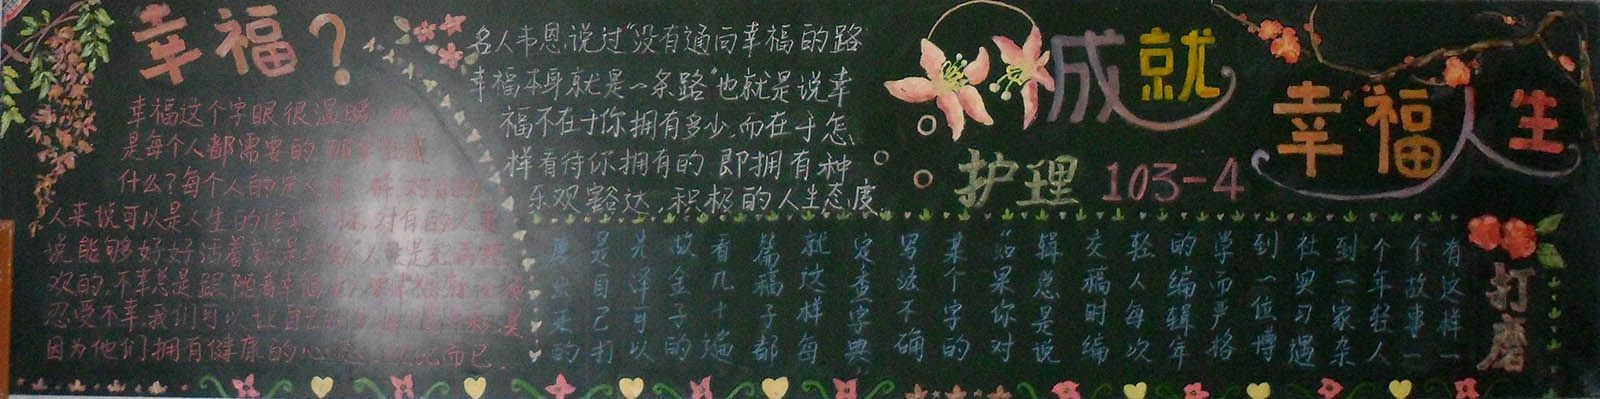 幸福？
幸福这个字眼很温暖
是每个人都需要的
什么?每个人的定义
人来说可以是人生的
对有的人来
说能够好好活着就是
欢的,不幸总是跟随着幸福
忍受不幸,我们可以让自己
因为他们拥有健康的心态 如此而已.
名人韦恩,说过"没有通向幸福的路
幸福本身就是一条路"也就是说幸
福不在于你拥有多少,而在于怎
样看待你拥有的 即拥有种
乐观豁达,积极的人生态度.
成就
幸福人生
护理 103-4
打磨
有这样一
个故事一
个年轻人
到一家杂
社实习遇
到一位博
学而严格
的编辑年
轻人每次
交稿时编
辑总是说
如果你对
某个字的
写法不确
定查字典
就这样每
篇稿子都
看几十遍
金子的
光泽可以
是自己打
出来的